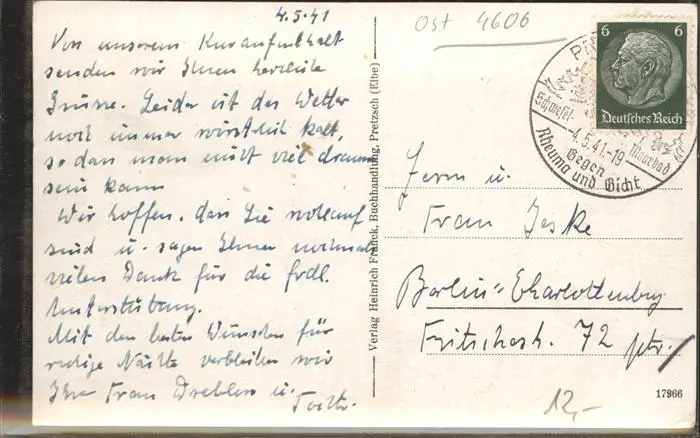 4.5.41
Von unserem Kuraufenthalt
senden wir Ihnen herzliche
Grüsse. Leider ist das Wetter
noch immer wirklich kalt,
so dass man nicht viel draussen
sein kann
Wir hoffen, dass Sie wohlauf
sind u. sagen Ihnen nochmals
vielen Dank für die frdl.
Unterstützung.
Mit den besten Wünschen für
ruhige Nächte verbleiben wir
Ihre Frau u.
Verlag Heinrich Franck, Buchhandlung, Pretzsch (Elbe)
Ost 4606
6 6
Deutsches Reich
Schwefel-
Moorbad
-4.5.41.-19
Gegen
Rheuma und Gicht
Herrn u.
Frau Jeske
Berlin-Charlottenburg
Fritschestr. 72 ptr.
17966
12,-